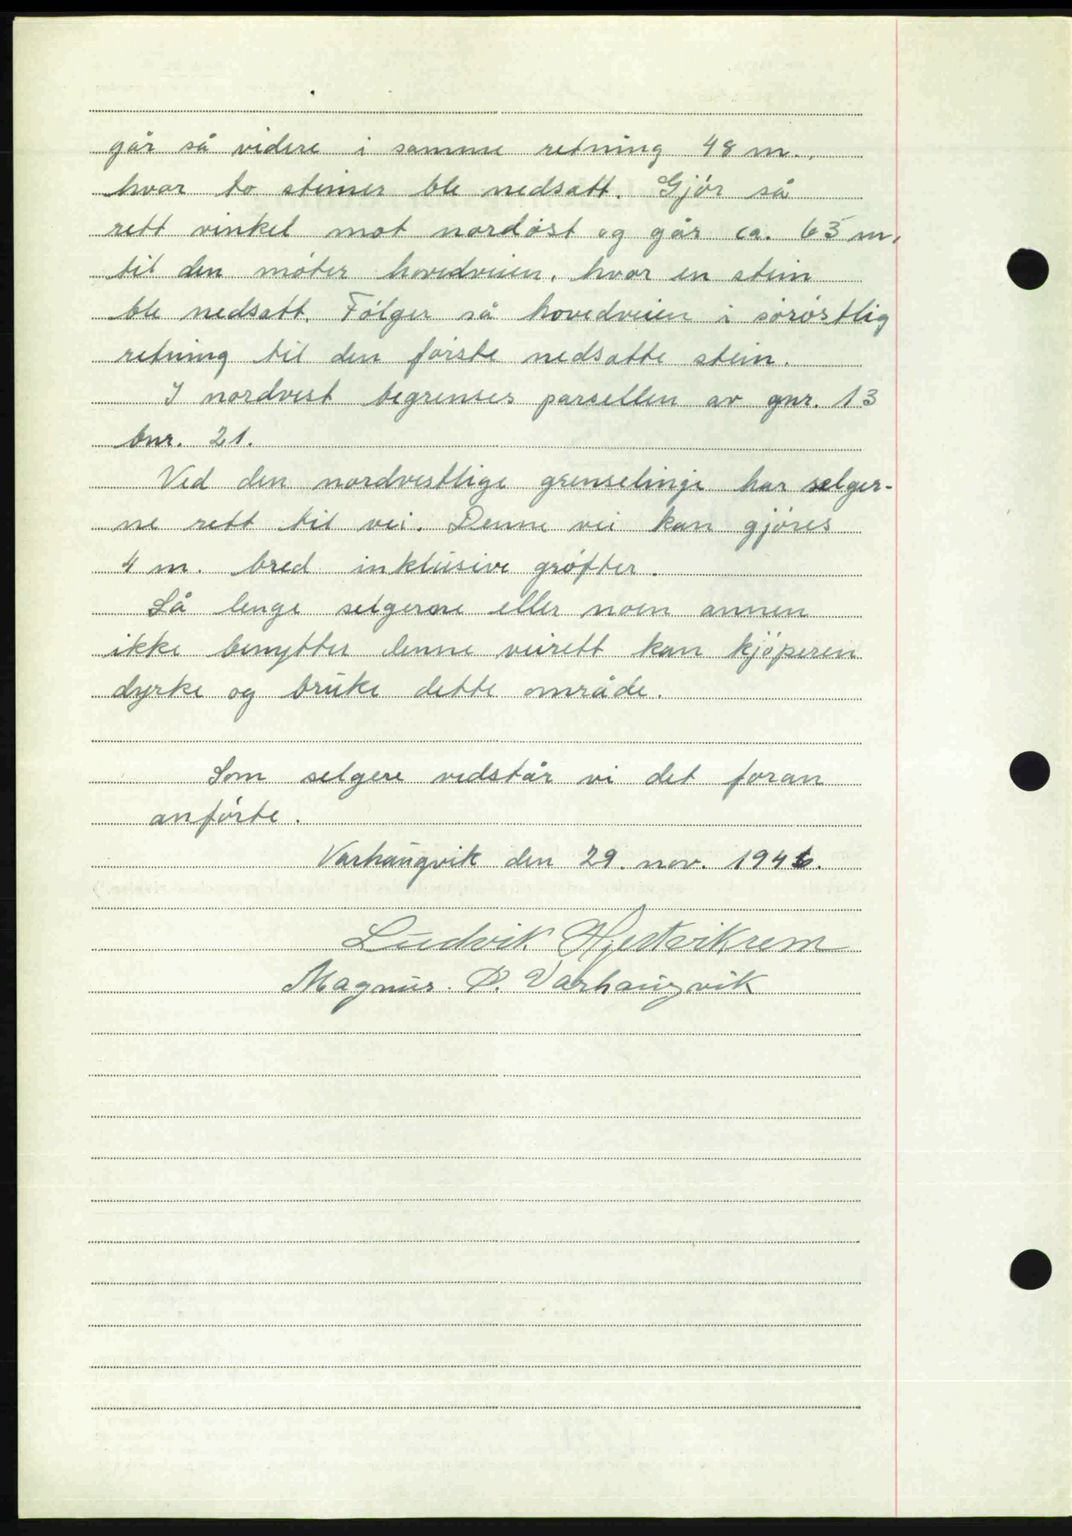 går så videre i samme retning 48 m.,
hvor to steiner ble nedsatt. Gjör så
rett vinkel mot nordöst og går ca. 63 m.
til den möter hovedveien, hvor en stein
ble nedsatt. Fölger så hovedveien i söröstlig
retning til den förste nedsatte stein.
I nordvest begrenses parsellen av gnr. 13
bnr. 21.
Ved den nordvestlige grenselinje har selger-
ne rett til vei. Denne vei kan gjöres
4 m. bred inklusive gröfter.
Så lenge selgerne eller noen annen
ikke benytter denne veirett kan kjöperen
dyrke og bruke dette område.
Som selgere vedstår vi det foran
anförte.
Varhaugvik den 29. nov. 1946.
Ludvik Hjertvikrem
Magnus. P. Varhaugvik